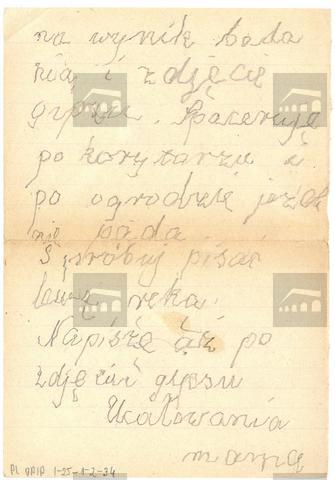 na wynik bada
nia i zdjęcie
gipsu. Spaceruję
po korytarzu i
po ogrodzie jeżeli
nie pada.
Spróbuj pisać
lewą ręką.
Napiszę aż po
zdjęciu gipsu
Ucałowania
mama
PL OPiP 1-25-1-2-34